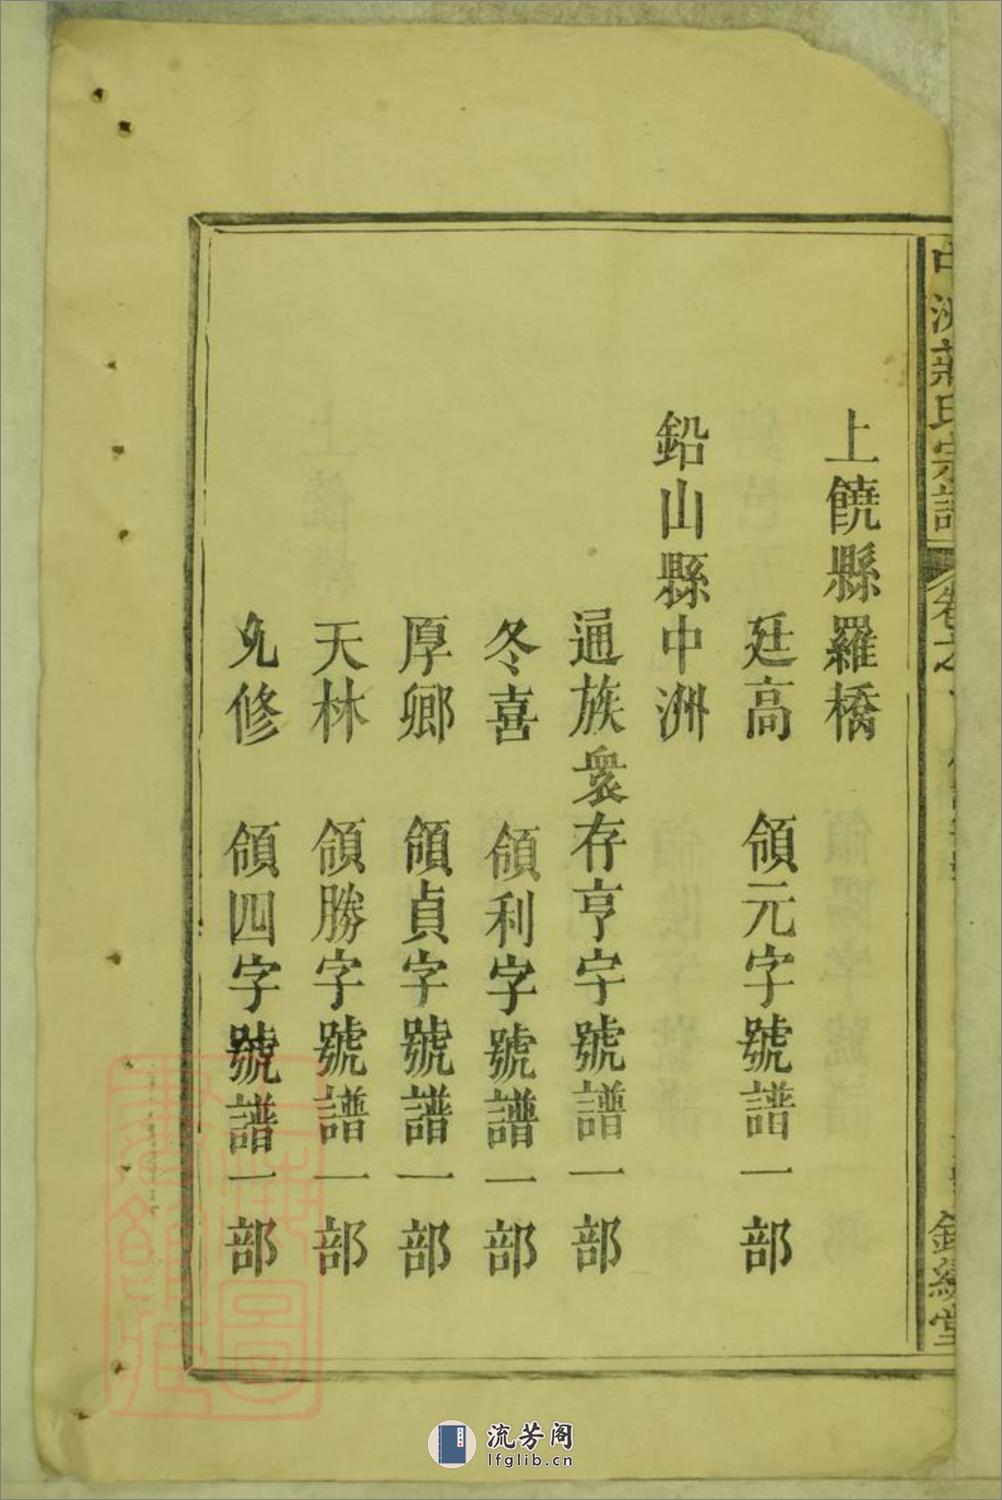 中洲蔣氏宗譜 卷之
上饒縣羅橋
廷高 領元字號譜一部
鉛山縣中洲
通族衆存亨字號譜一部
冬喜 領利字號譜一部
厚卿 領貞字號譜一部
天林 領勝字號譜一部
允修 領四字號譜一部
上海圖書館藏
流芳阁
lfglib.cn